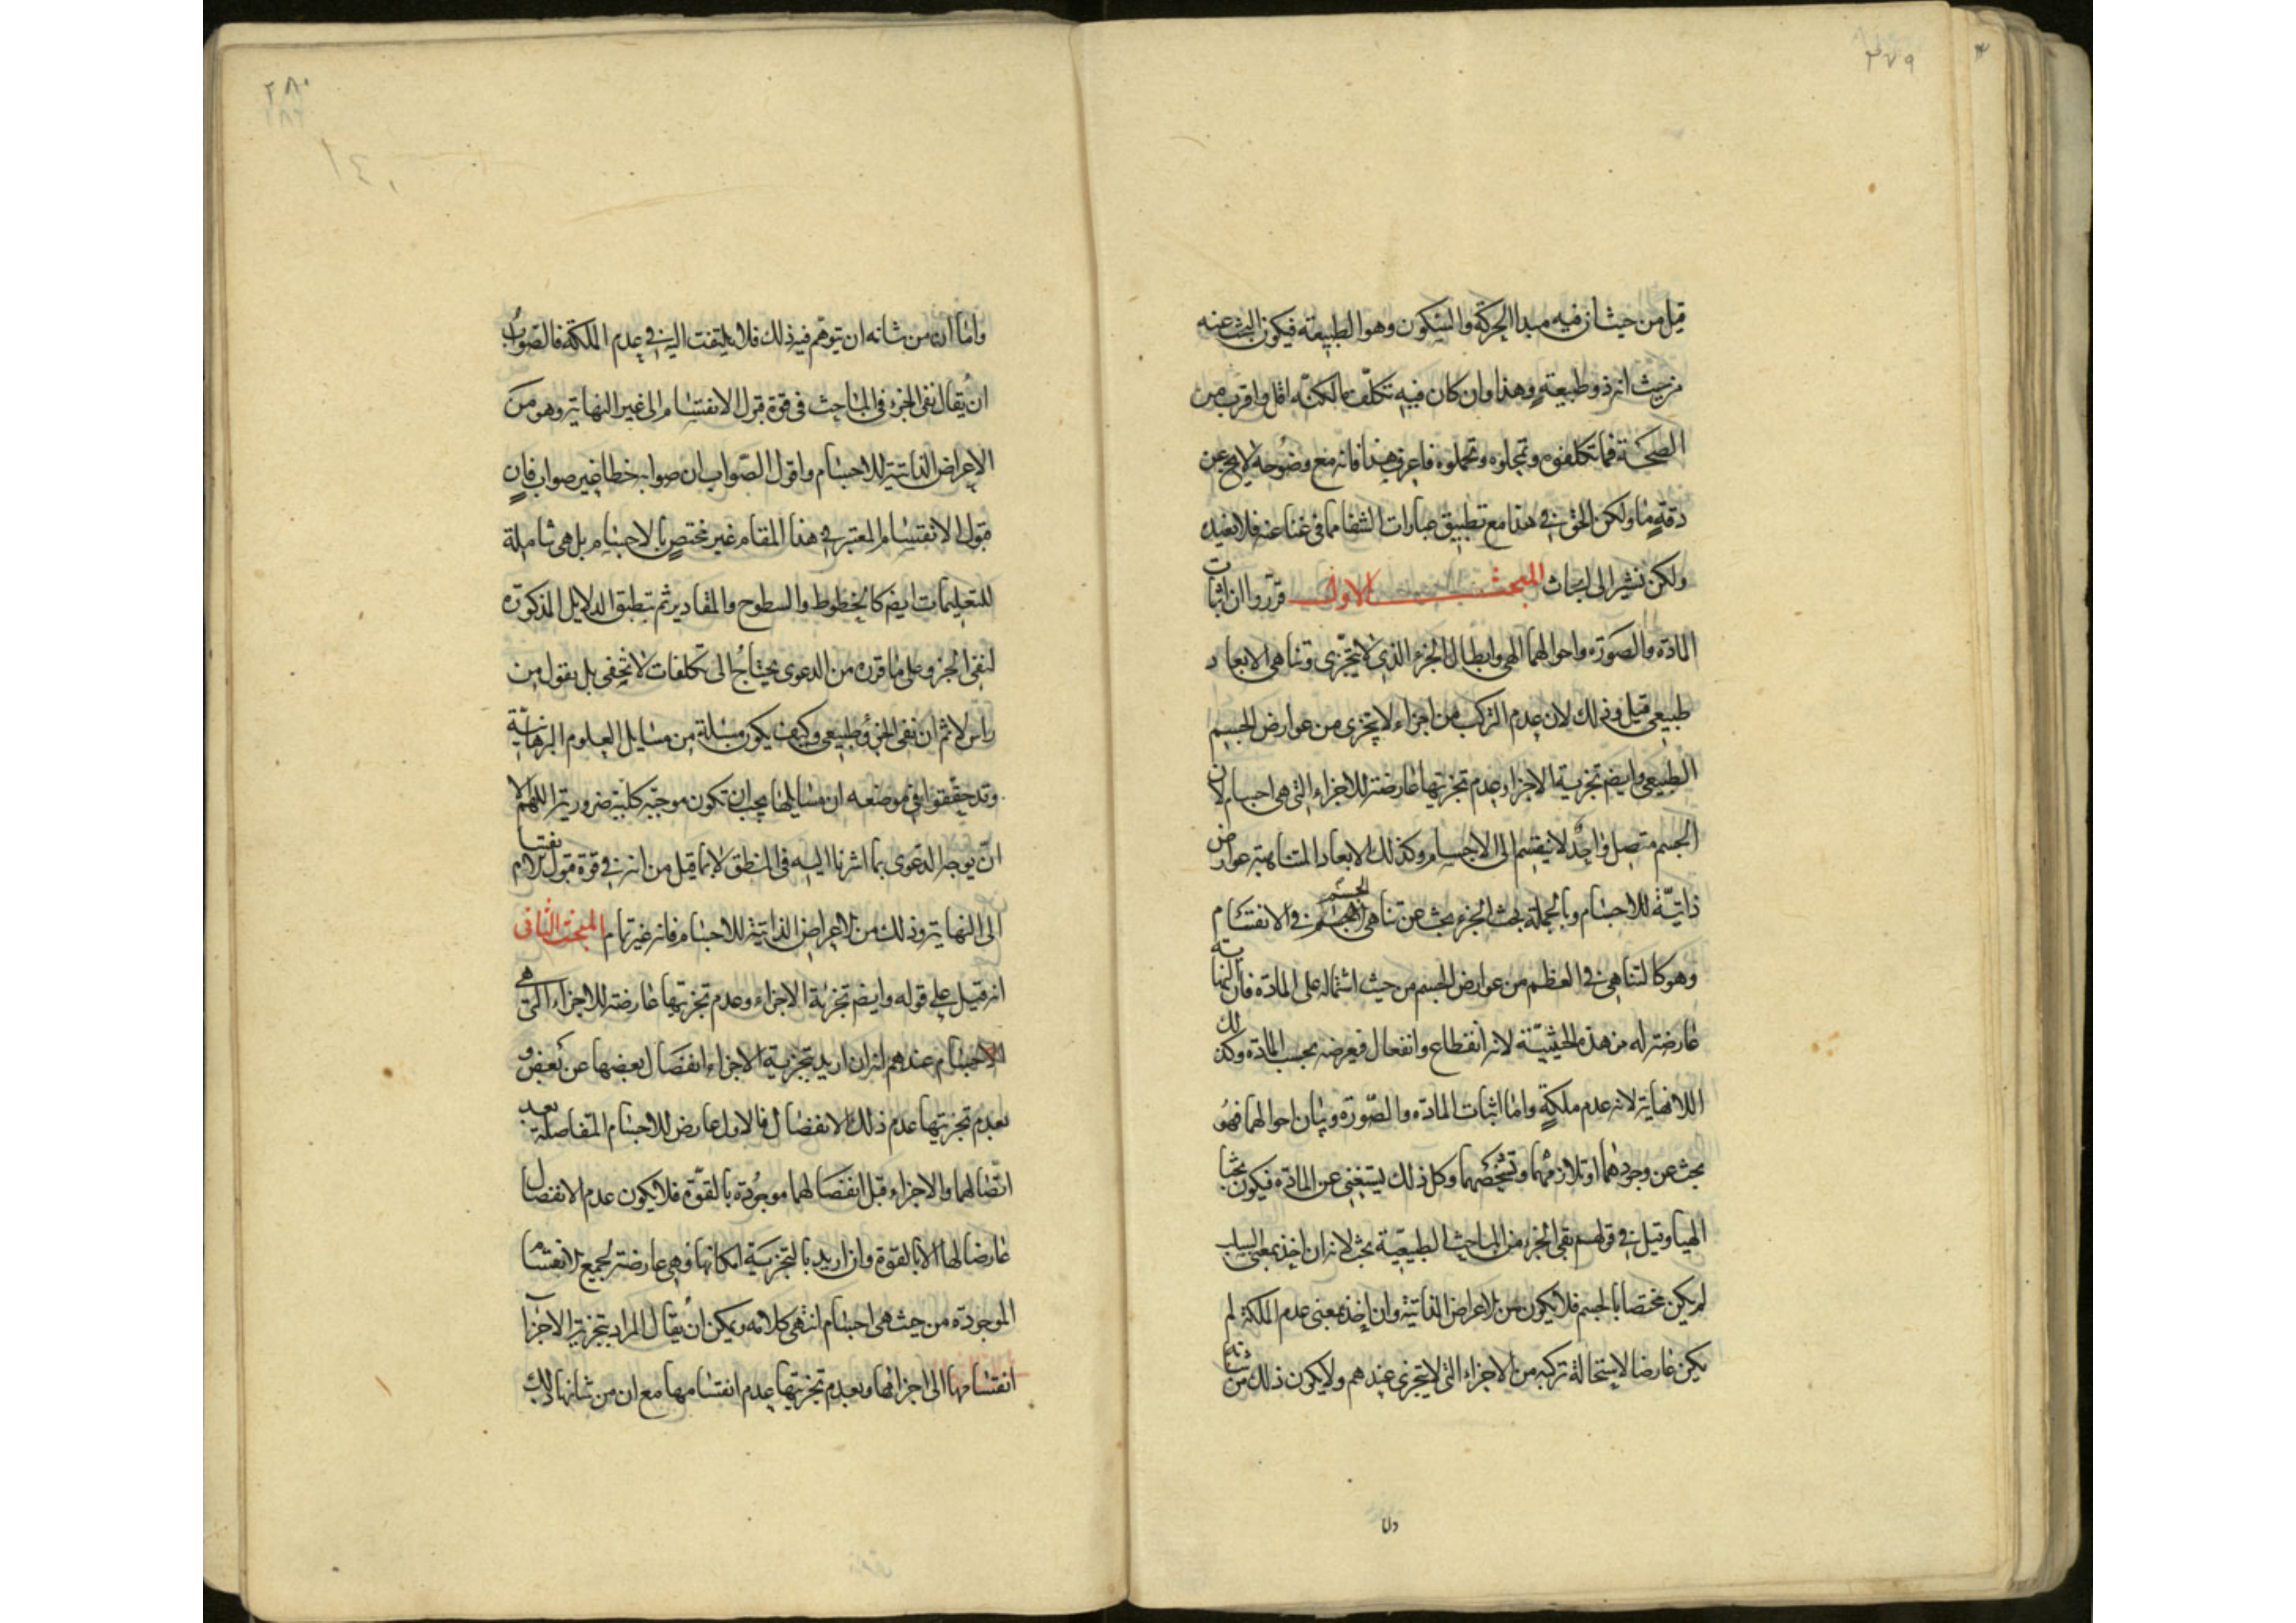 ٢٧٩
قيل من حيث ان فيه مبدا الحركة والسكون وهو الطبيعة فيكون البحث عنه
من حيث انه ذو طبيعة وهذا وان كان فيه تكلف ما لكنه اقل واقرب من
الصحة مما تكلفوه وتمحلوه فاعرف هذا فانه مع وضوحه لا يخ عن
دقة ما ولكن الحق في هذا مع تطبيق عبارات الشفا مما في غنا عنه فلا نعيده
ولكن نشير الى ابحاث المبحث الاول قرروا ان اثبات
المادة والصورة واحوالهما الهي وابطال الجزء الذي لا يتجزى وتناهى الابعاد
طبيعي قيل وذلك لان عدم التركب من اجزاء لا يتجزى من عوارض الجسم
الطبيعي وايضم تجزية الاجزاء وعدم تجزيتها عارضة للاجزاء التى هى اجسام لان
الجسم متصل واحد لا ينقسم الى الاجسام وكذلك الابعاد المتناهية عوارض
ذاتية للاجسام وبالجملة بحث الجزء بحث عن تناهى الجسم في الانقسام
وهو كالتناهى في العظم من عوارض الجسم من حيث اشتماله على المادة فان النهاية
عارضة له من هذه الحيثية لانه انقطاع وانفعال فيعرضه بحسب المادة وكذلك
اللانهاية لانه عدم ملكة واما اثبات المادة والصورة وبيان احوالهما فهو
بحث عن وجودهما او تلازمهما وتشخصهما وكل ذلك يستغنى عن المادة فيكون بحثا
الهيا وقيل في قولهم نفى الجزء من المباحث الطبيعية بحث لانه ان اخذ بمعنى السلب
لم يكن مختصا بالجسم فلا يكون من الاعراض الذاتية وان اخذ بمعنى عدم الملكة لم
يكن عارضا لاستحالة تركبه من الاجزاء التى لا يتجزى عندهم ولا يكون ذلك من شانه
واما
٢٨٠
١٤٠
واما ان من شانه ان يتوهم فيه ذلك فلا يلتفت اليه في عدم الملكة فالصواب
ان يقال نفى الجزء فى المباحث فى قوة قبول الانقسام الى غير النهاية وهو من
الاعراض الذاتية للاجسام واقول الصواب ان صوابه خطا غير صواب فان
قبول الانقسام المعتبر في هذا المقام غير مختص بالاجسام بل هى شاملة
للتعليمات ايضم كالخطوط والسطوح والمقادير ثم تطبق الدلايل المذكورة
لنفى الجزء على ما قرره من الدعوى يحتاج الى تكلفات لا تخفى بل نقول من
راس لا ثم ان نفى الجزء طبيعي وكيف يكون مسئلة من مسايل العلوم البرهانية
وقد حققوا في موضعه ان مسايلها يجب ان تكون موجبة كلية ضرورية اللهم الا
ان يوجه الدعوى بما اشرنا اليه فى المنطق لا بما قيل من انه في قوة قبول الانقسام
الى النهاية وذلك من الاعراض الذاتية للاجسام فانه غير تام المبحث الثانى
انه قيل على قوله وايضم تجزية الاجزاء وعدم تجزيتها عارضة للاجزاء التى هى
الاجسام عندهم انه ان اريد بتجزية الاجزاء انفصال بعضها عن بعض و
بعدم تجزيتها عدم ذلك الانفصال فالاول عارض للاجسام المتفاصلة بعد
اتصالهما والاجزاء قبل انفصالهما موجودة بالقوة فلا يكون عدم الانفصال
عارضا لها الا بالقوة وان اريد بالتجزية امكانها فهى عارضة لجميع الانقسام
الموجودة من حيث هى اجسام انتهى كلامه ويمكن ان يقال المراد بتجزية الاجزا
انقسامها الى اجزائها وبعدم تجزيتها عدم انقسامها مع ان من شانها ذلك